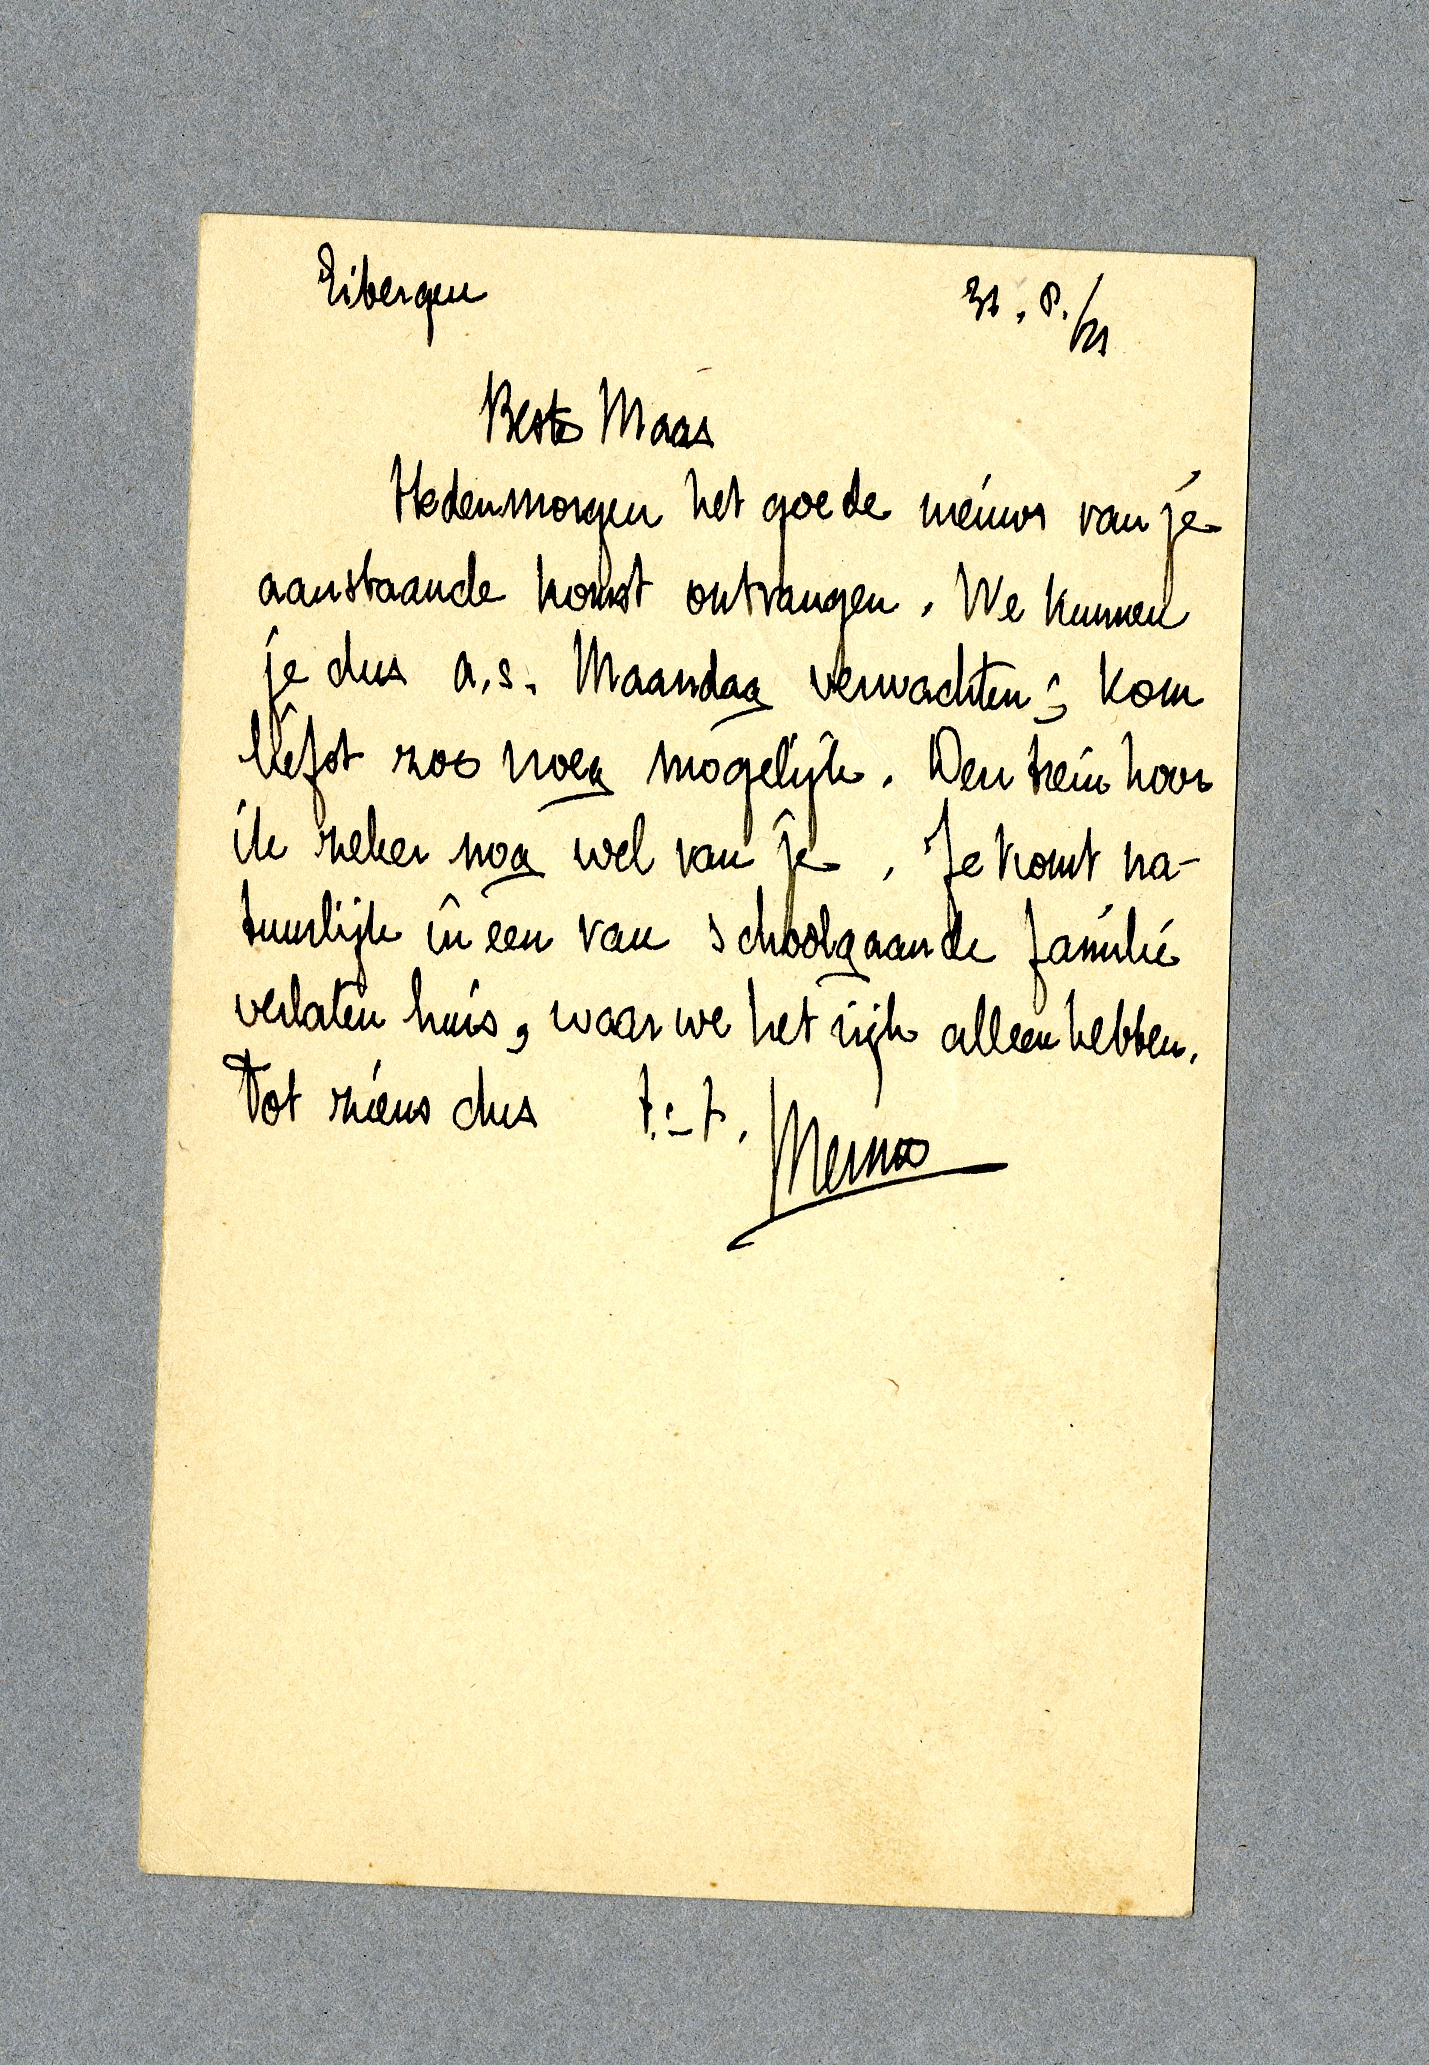 Eibergen 31.8./21
Beste Maas
Hedenmorgen het goede nieuws van je
aanstaande komst ontvangen. We kunnen
je dus a.s. Maandag verwachten; kom
liefst zoo vroeg mogelijk. Den trein hoor
ik zeker nog wel van je. Je komt na-
tuurlijk in een van schoolgaande familie
verlaten huis, waar we het rijk alleen hebben.
Tot ziens dus t.-t.
Menno